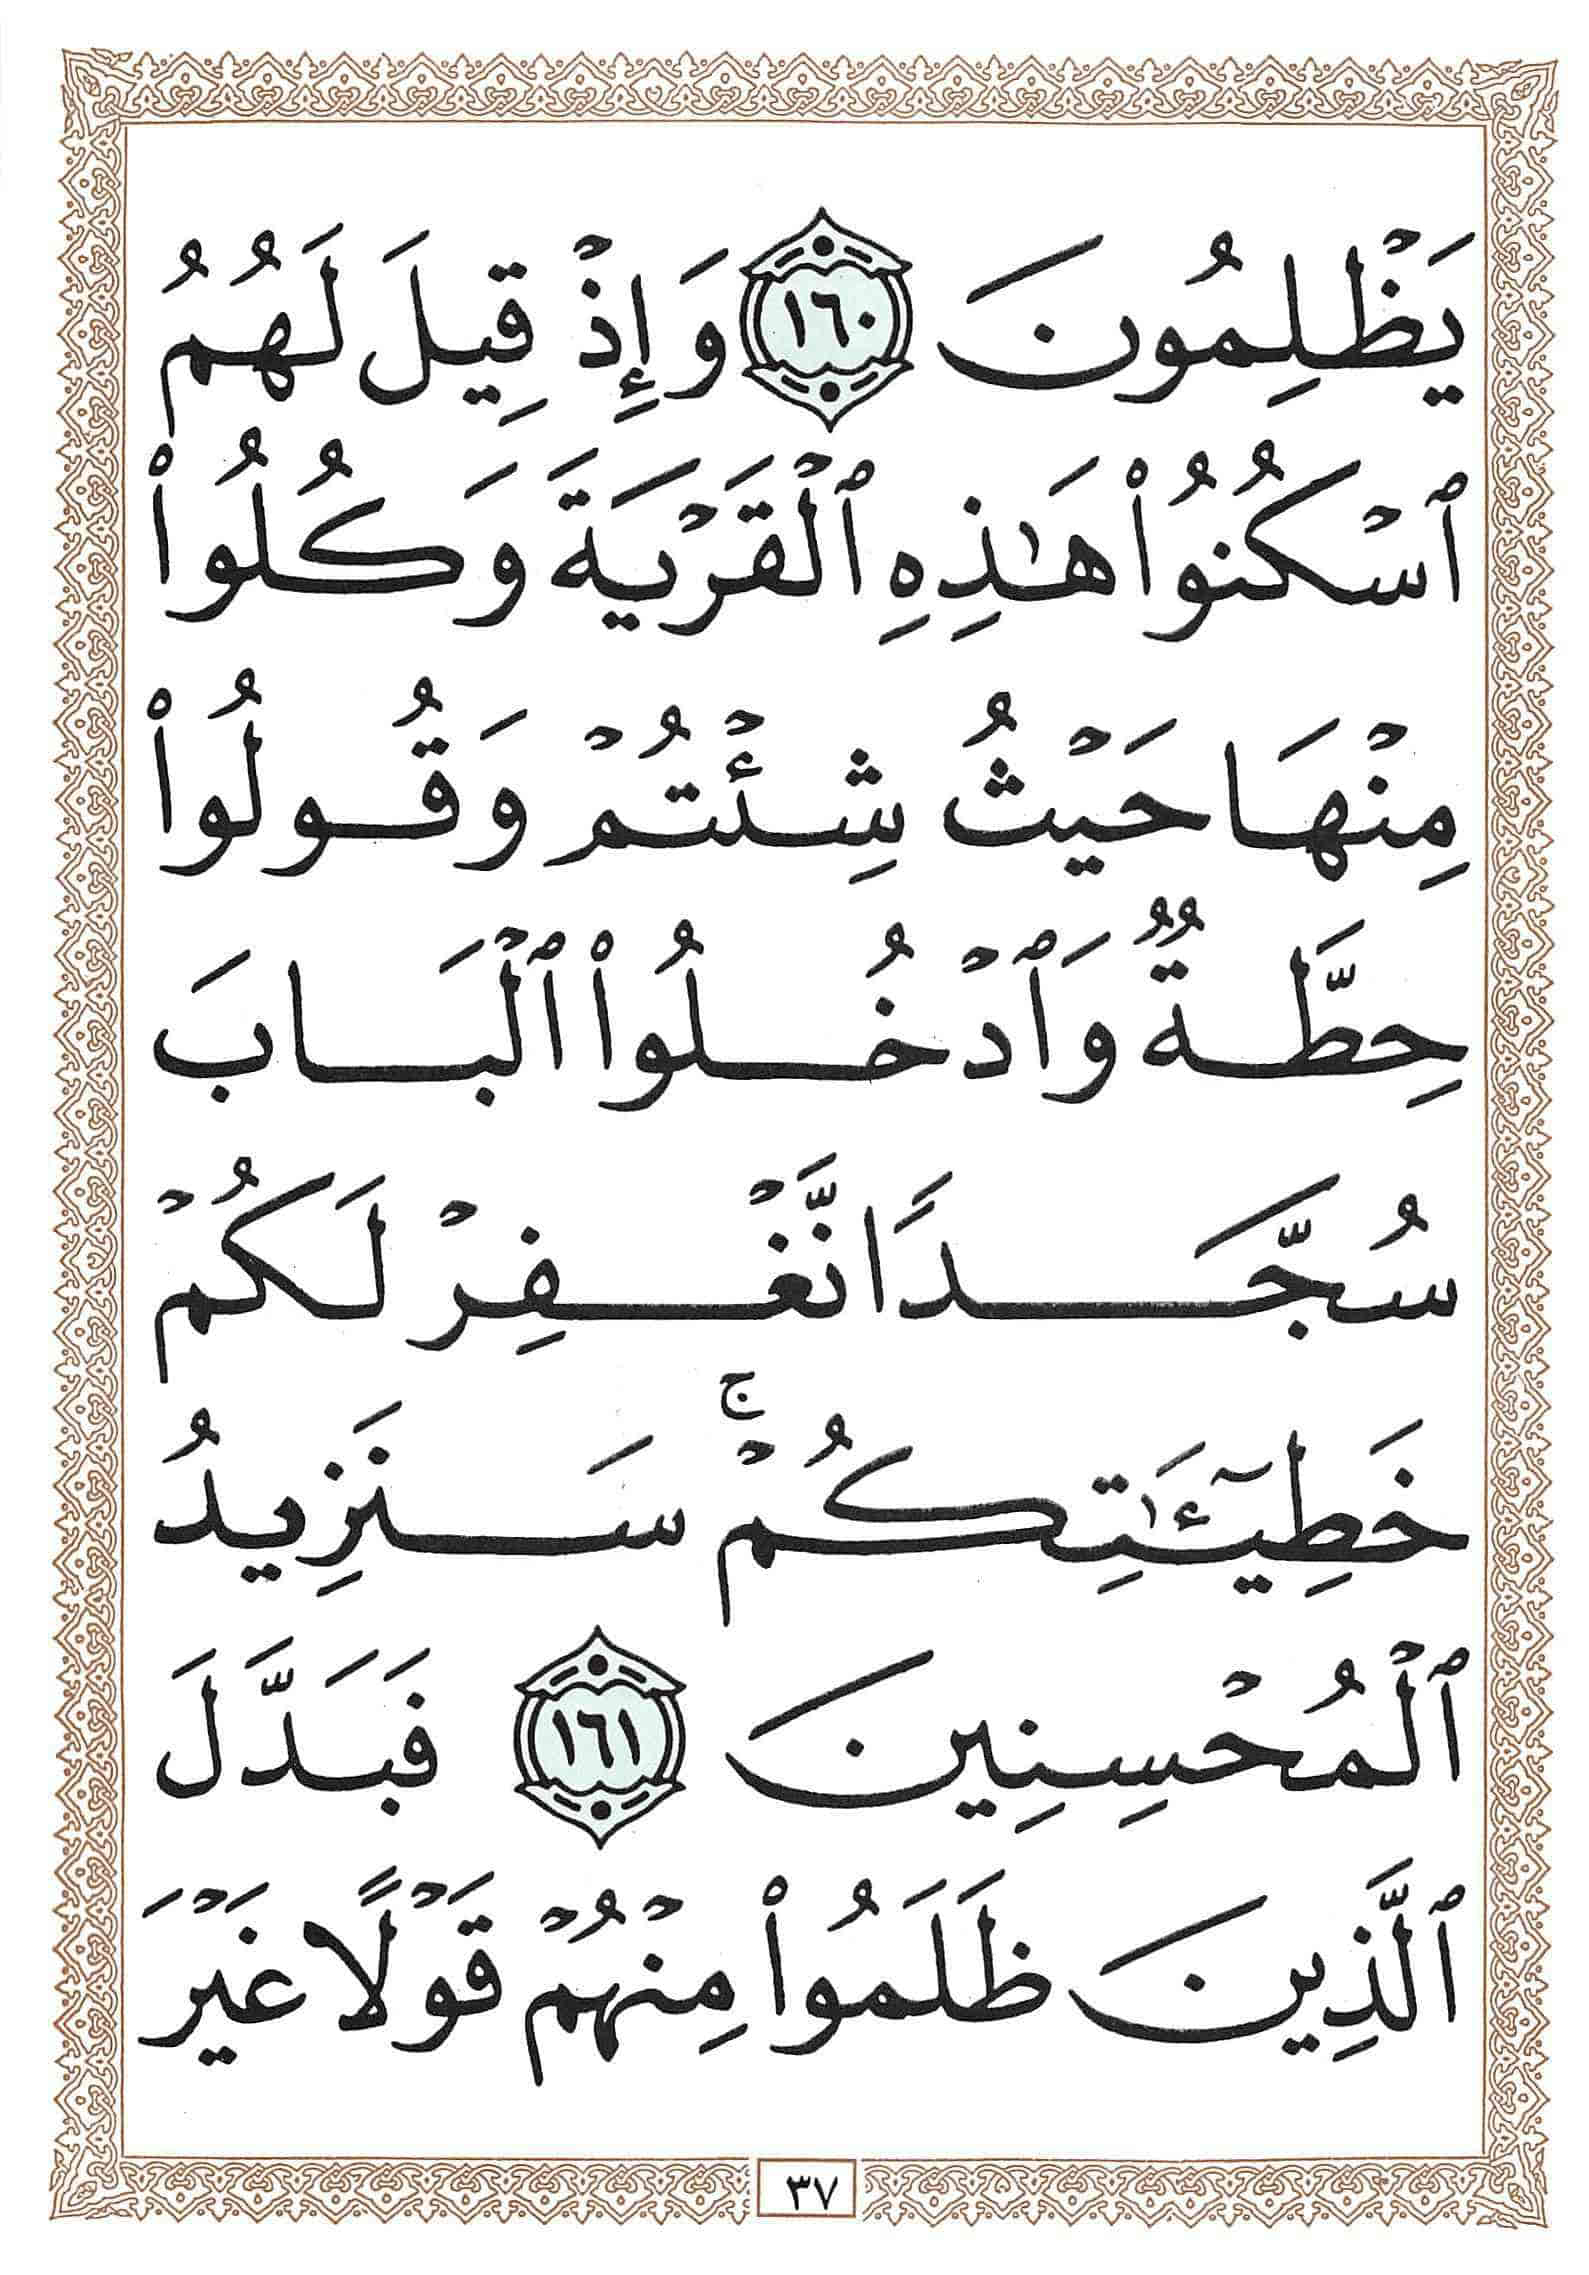 يَظْلِمُونَ ١٦٠ وَإِذْ قِيلَ لَهُمُ
ٱسْكُنُوا۟ هَـٰذِهِ ٱلْقَرْيَةَ وَكُلُوا۟
مِنْهَا حَيْثُ شِئْتُمْ وَقُولُوا۟
حِطَّةٌ وَٱدْخُلُوا۟ ٱلْبَابَ
سُجَّدًا نَّغْفِرْ لَكُمْ
خَطِيٓـَٔـٰتِكُمْ ۚ سَنَزِيدُ
ٱلْمُحْسِنِينَ ١٦١ فَبَدَّلَ
ٱلَّذِينَ ظَلَمُوا۟ مِنْهُمْ قَوْلًا غَيْرَ
٣٧